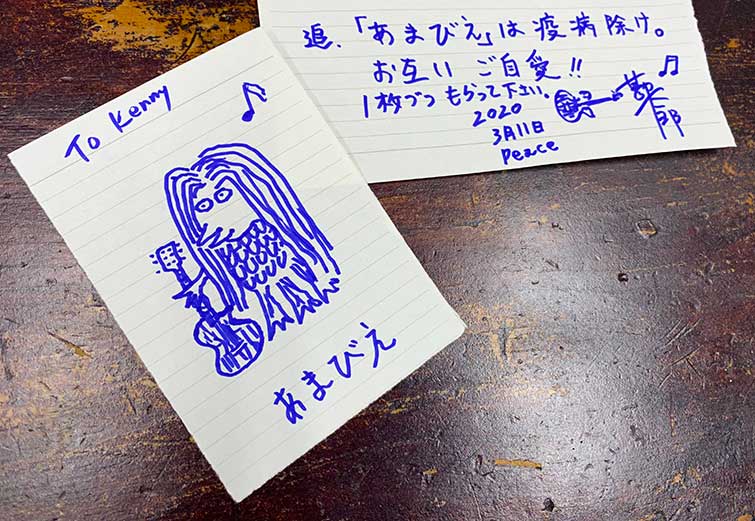 To Kenny
あまびえ
追.「あまびえ」は疫病除け。
お互い ご自愛!!
1枚づつ もらって下さい。
2020
3月11日
Peace